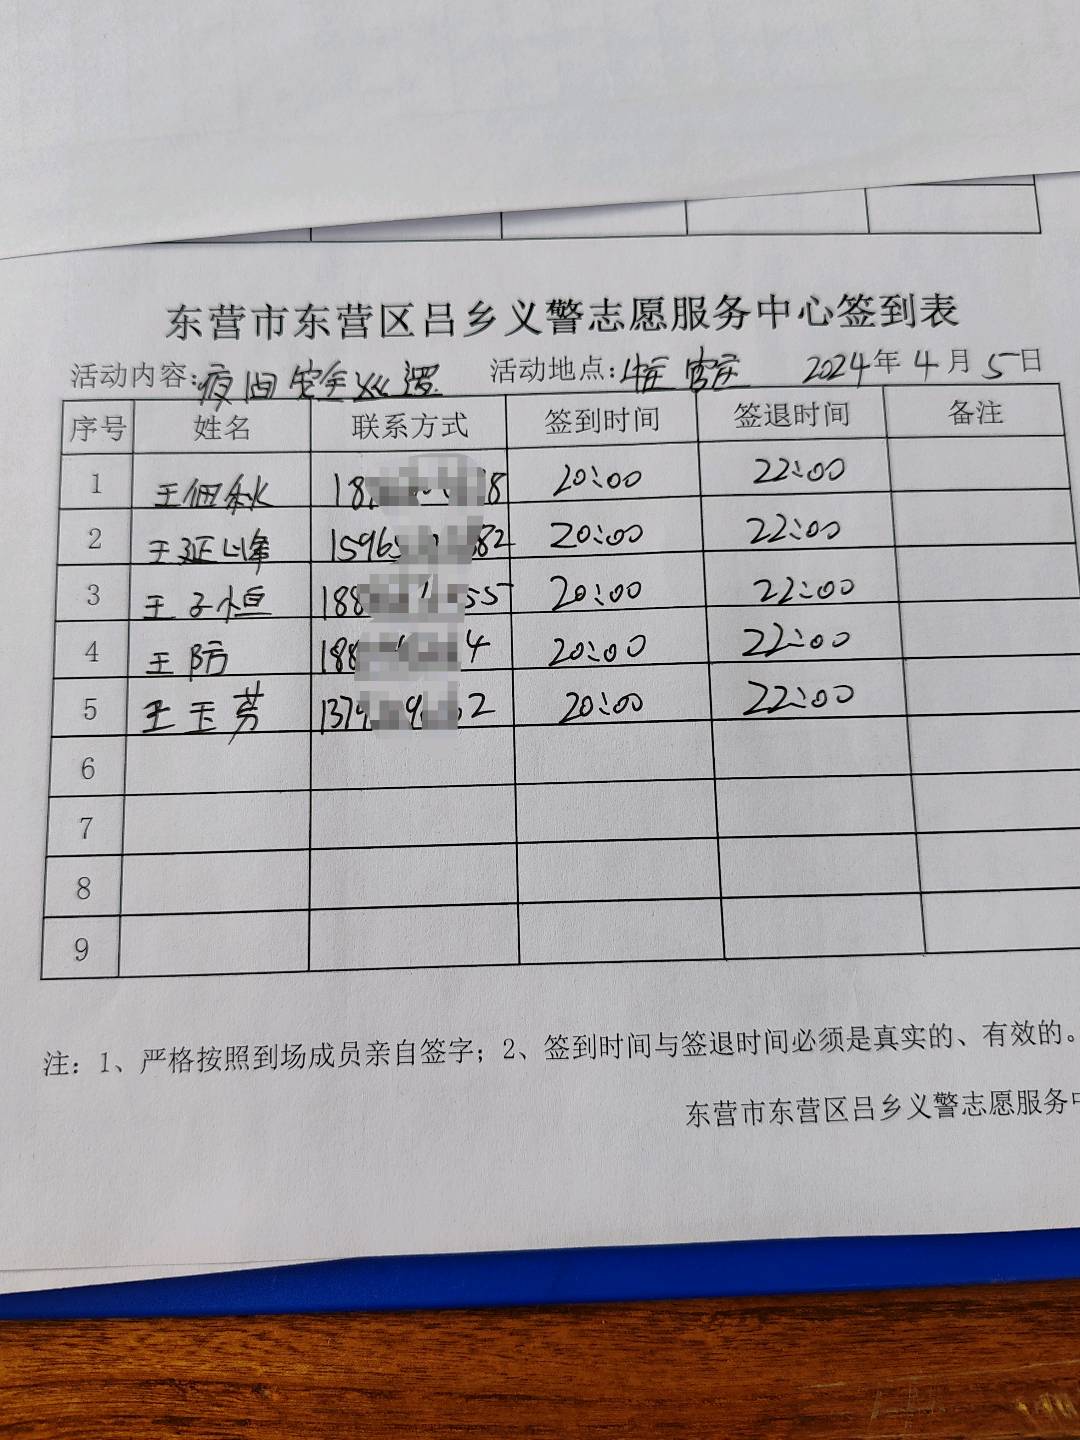 东营市东营区吕乡义警志愿服务中心签到表
活动内容:夜间安全巡逻 活动地点: 2024年4月5日
序号 姓名 联系方式 签到时间 签退时间 备注
1 王佃秋 18 8 20:00 22:00
2 王延峰 1596 82 20:00 22:00
3 王子恒 188 55 20:00 22:00
4 王防 188 4 20:00 22:00
5 王玉芳 137 2 20:00 22:00
6
7
8
9
注：1、严格按照到场成员亲自签字；2、签到时间与签退时间必须是真实的、有效的。
东营市东营区吕乡义警志愿服务中